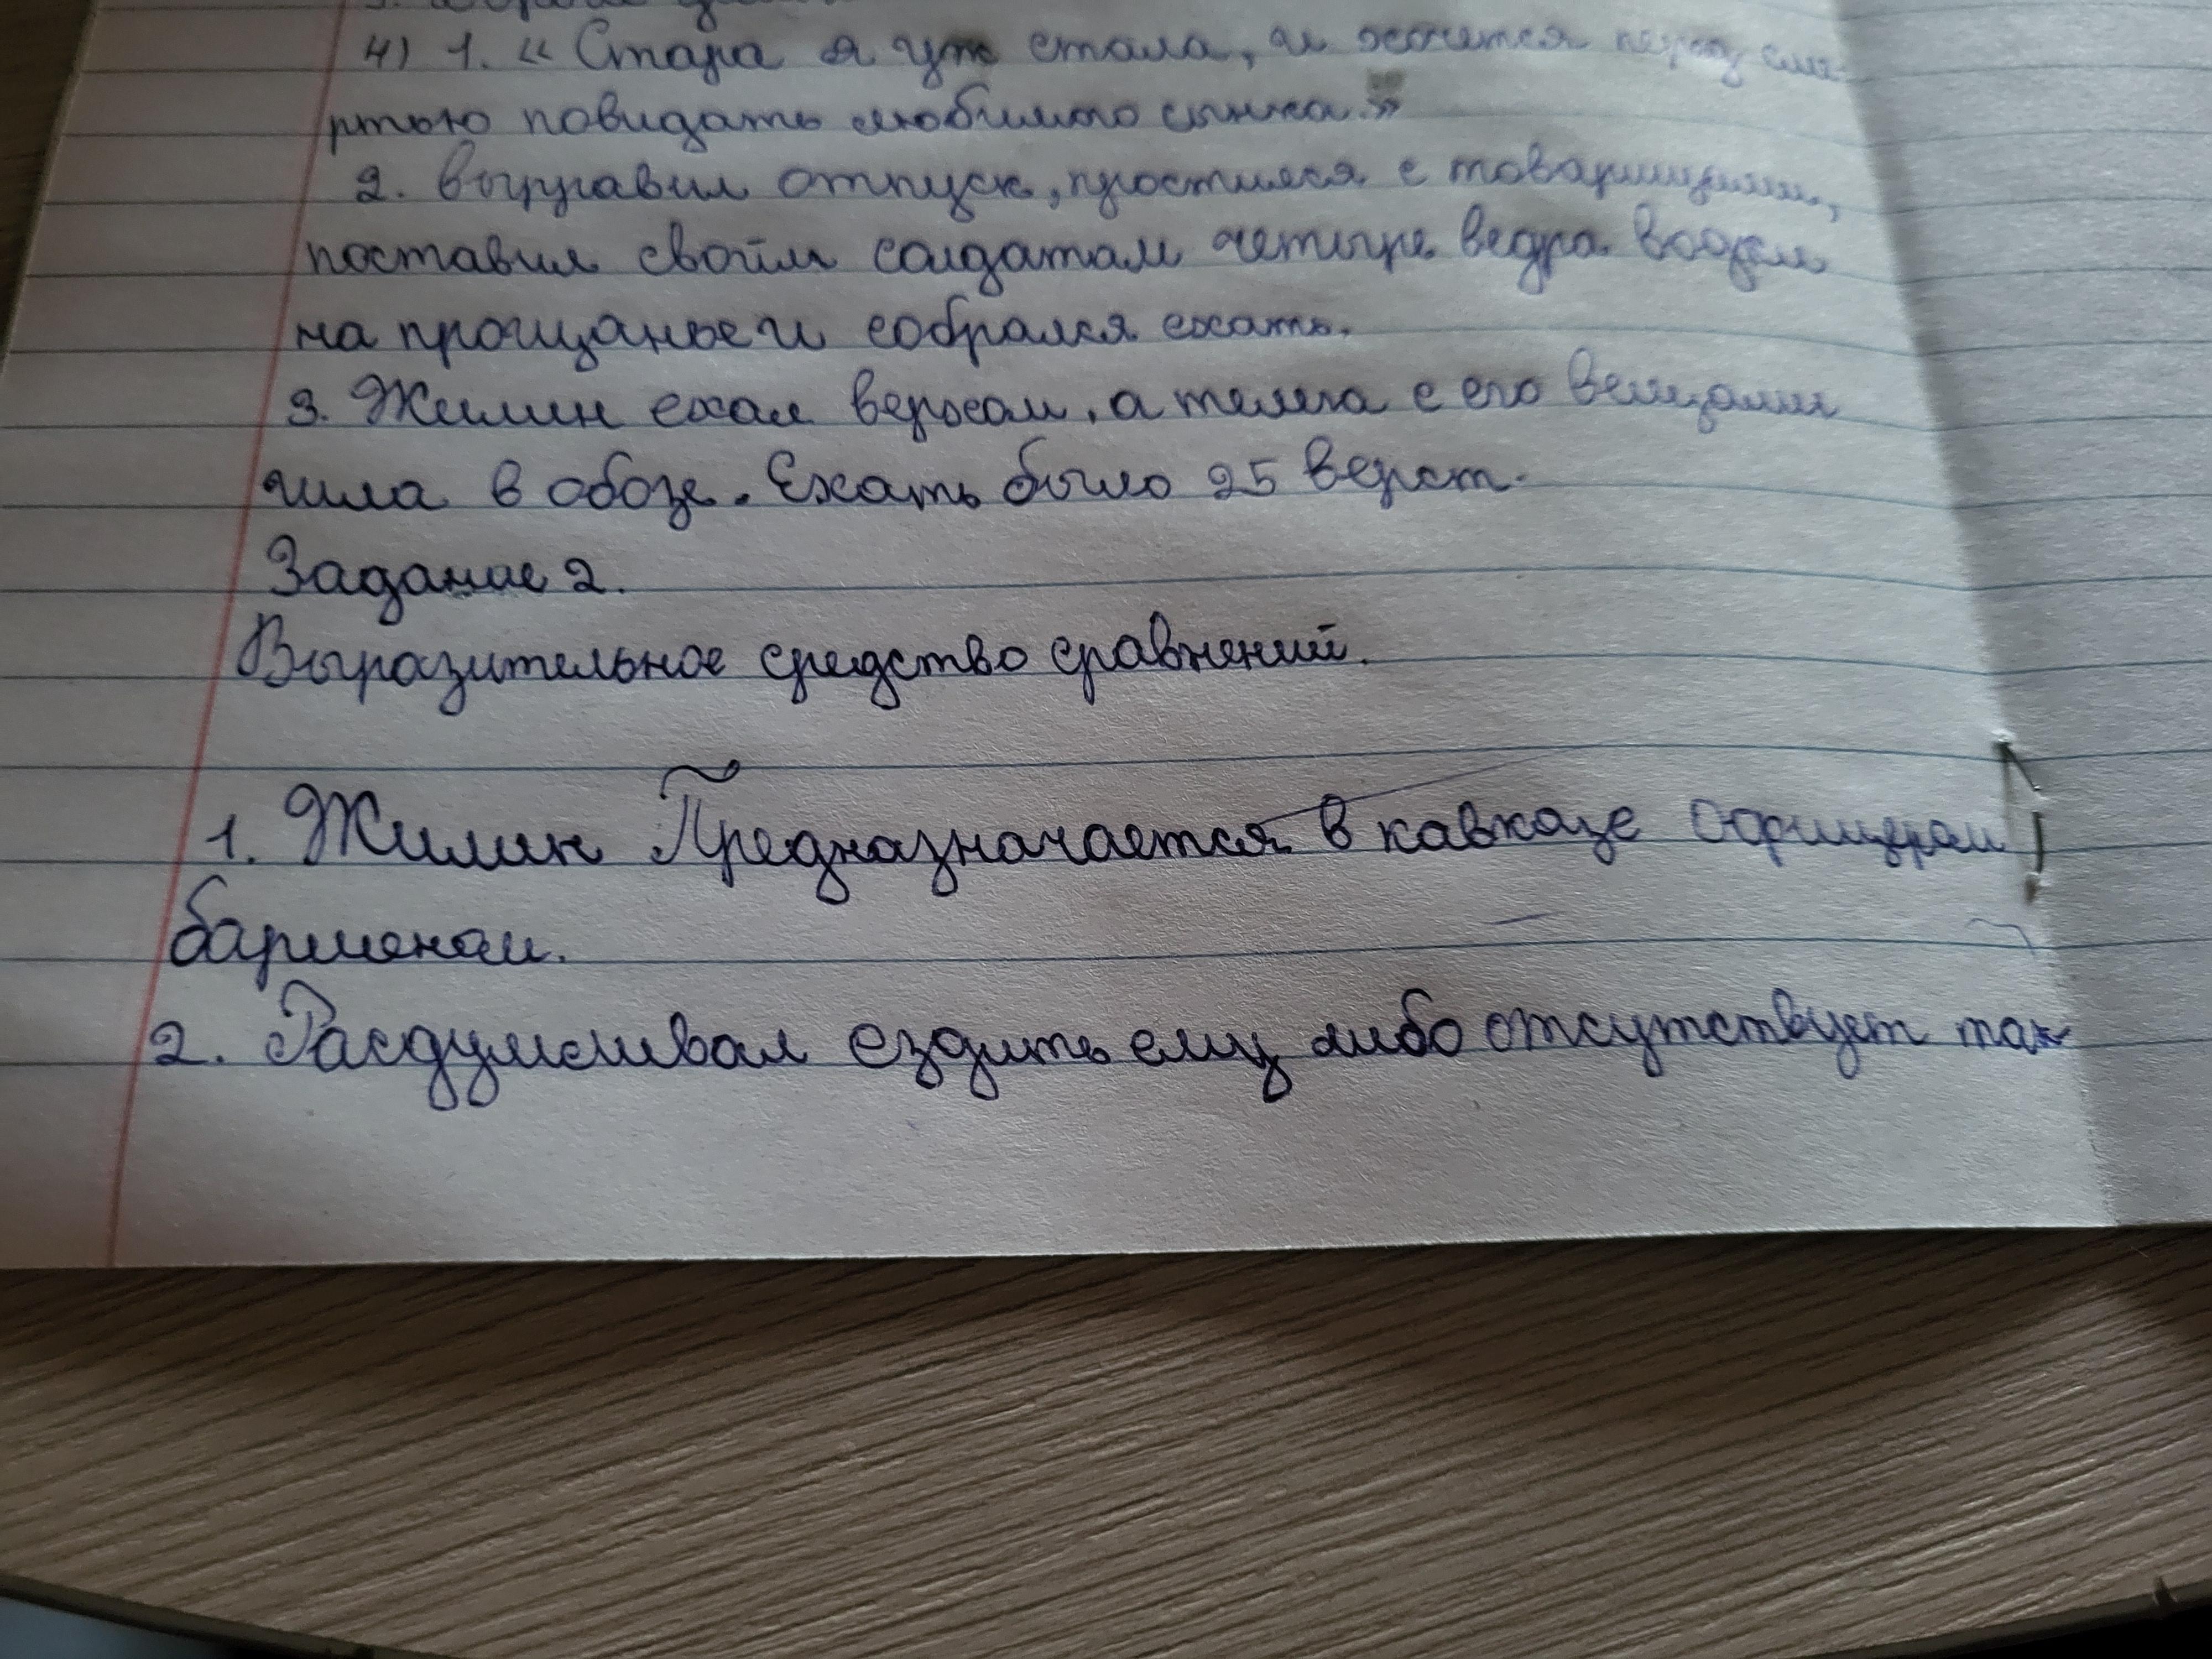 4) 1. « Стара я уж стала, и хочется перед сме-
ртью повидать любимого сынка.»
2. Выправил отпуск, простился с товарищами,
поставил своим солдатам четыре ведра водки
на прощанье и собрался ехать.
3. Жилин ехал верхом, а телега с его вещами
шла в обозе. Ехать было 25 верст.
Задание 2.
Выразительное средство сравнений.
1. Жилин Предназначается в кавказе офицером
барменом.
2. Расдумывал ездить ему либо отсутствует так